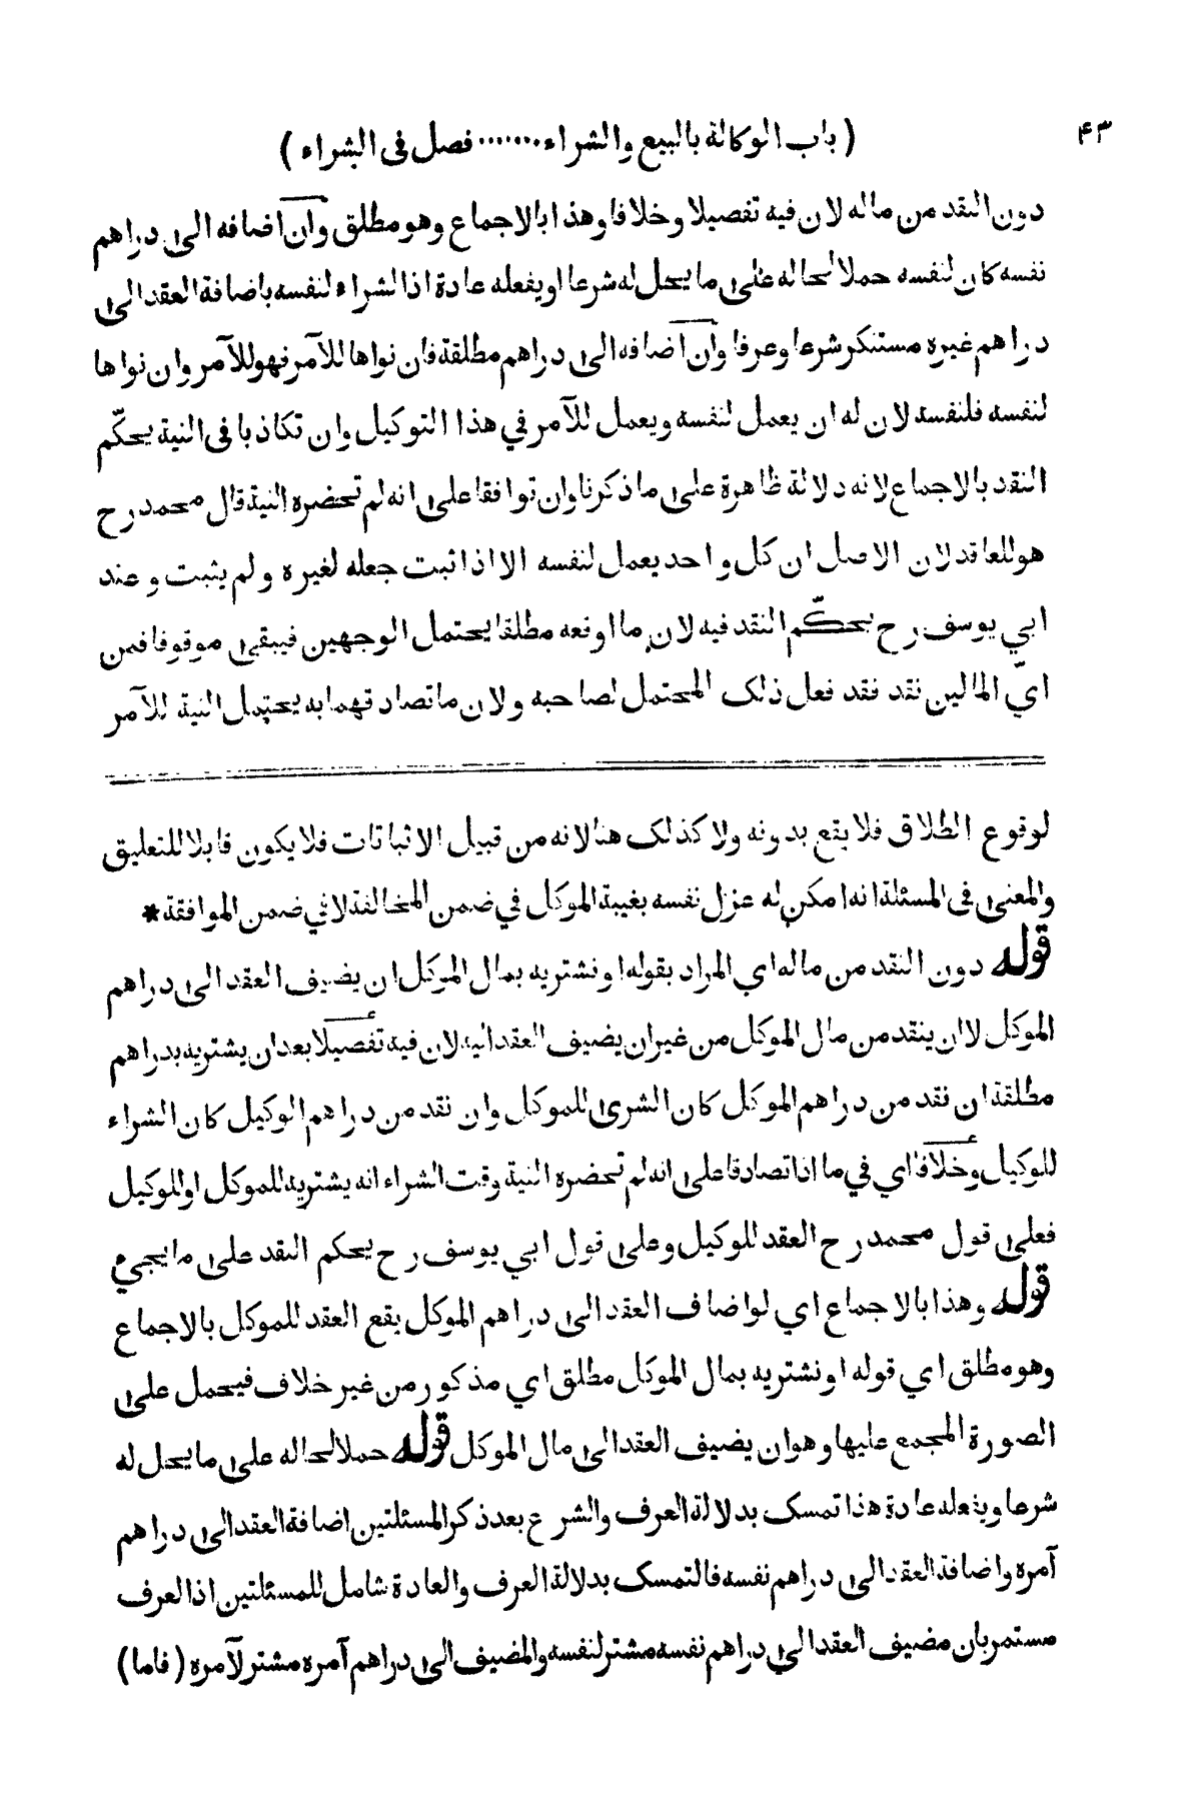 ( باب الوكالة بالبيع والشراء ....... فصل فى الشراء ) ۴۳
دون النقد من ماله لان فيه تفصيلا وخلافا وهذا بالاجماع وهو مطلق وان اضافه الى دراهم
نفسه كان لنفسه حملا لحاله على ما يحل له شرعا او يفعله عادة اذ الشراء لنفسه باضافة العقد الى
دراهم غيره مستنكر شرعا وعرفا وان اضافه الى دراهم مطلقة فان نواها للآمر فهو للآمر وان نواها
لنفسه فلنفسه لان له ان يعمل لنفسه ويعمل للآمر في هذا التوكيل وان تكاذبا فى النية يحكّم
النقد بالاجماع لانه دلالة ظاهرة على ما ذكرنا وان توافقا على انه لم تحضره النية قال محمد رح
هو للعاقد لان الاصل ان كل واحد يعمل لنفسه الا اذا ثبت جعله لغيره ولم يثبت وعند
ابي يوسف رح يحكّم النقد فيه لان ما اوقعه مطلقا يحتمل الوجهين فيبقى موقوفا فمن
ايّ المالين نقد فقد فعل ذلك المحتمل لصاحبه ولان ما تصادقهما به يحتمل النية للآمر
لوقوع الطلاق فلا يقع بدونه ولا كذلك هنا لانه من قبيل الاثباتات فلا يكون قابلا للتعليق
والمعنى فى المسئلة انه امكن له عزل نفسه بغيبة الموكل في ضمن المخالفة لا في ضمن الموافقة *
قوله دون النقد من ماله اي المراد بقوله او نشتريه بمال الموكل ان يضيف العقد الى دراهم
الموكل لا ان ينقد من مال الموكل من غير ان يضيف العقد اليه لان فيه تفصيلا بعد ان يشتريه بدراهم
مطلقة ان نقد من دراهم الموكل كان الشرى للموكل وان نقد من دراهم الوكيل كان الشراء
للوكيل وخلافا اي في ما اذا تصادقا على انه لم تحضره النية وقت الشراء انه يشتريه للموكل او للوكيل
فعلى قول محمد رح العقد للوكيل وعلى قول ابي يوسف رح يحكم النقد على ما يجيئ
قوله وهذا بالاجماع اي لو اضاف العقد الى دراهم الموكل يقع العقد للموكل بالاجماع
وهو مطلق اي قوله او نشتريه بمال الموكل مطلق اي مذكور من غير خلاف فيحمل على
الصورة المجمع عليها وهو ان يضيف العقد الى مال الموكل قوله حملا لحاله على ما يحل له
شرعا ويفعله عادة هذا تمسك بدلالة العرف والشرع بعد ذكر المسئلتين اضافة العقد الى دراهم
آمره واضافة العقد الى دراهم نفسه فالتمسك بدلالة العرف والعادة شامل للمسئلتين اذ العرف
مستمر بان مضيف العقد الي دراهم نفسه مشتر لنفسه والمضيف الى دراهم آمره مشتر لآمره ( فاما )